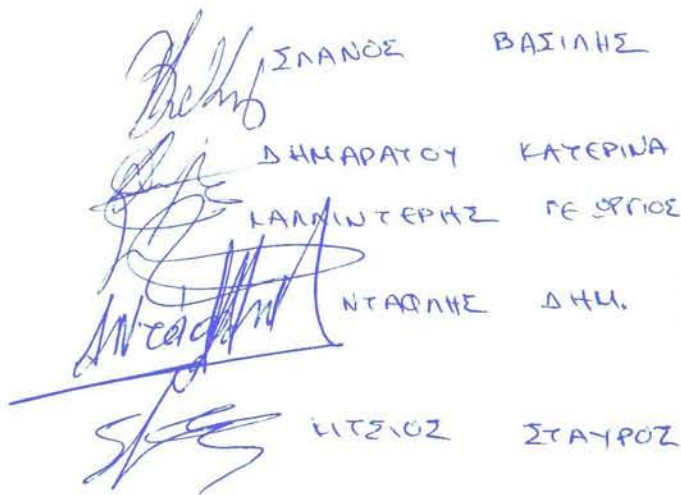 ΣΛΑΝΟΣ ΒΑΣΙΛΗΣ
ΔΗΜΑΡΑΤΟΥ ΚΑΤΕΡΙΝΑ
ΚΑΛΛΙΝΤΕΡΗΣ ΓΕΩΡΓΙΟΣ
ΝΤΑΦΛΗΣ ΔΗΜ.
ΚΙΤΣΙΟΣ ΣΤΑΥΡΟΣ